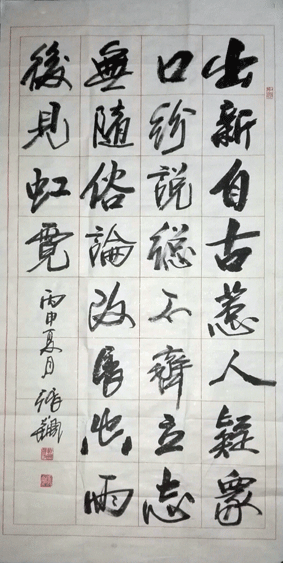 出新自古惹人疑衆
口紛説總不齊立志
無隨俗論改長空雨
後見虹霓
丙申夏月